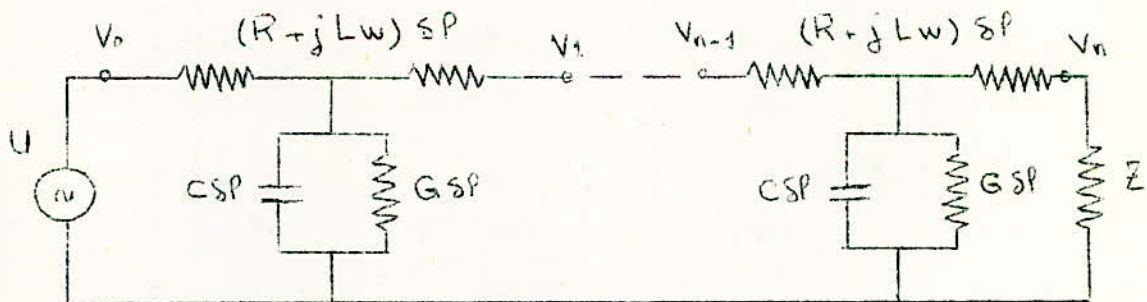 V₀ (R + j Lw) δP V₁ Vn-1 (R + j Lw) δP Vn
U ~ CδP GδP CδP GδP Z